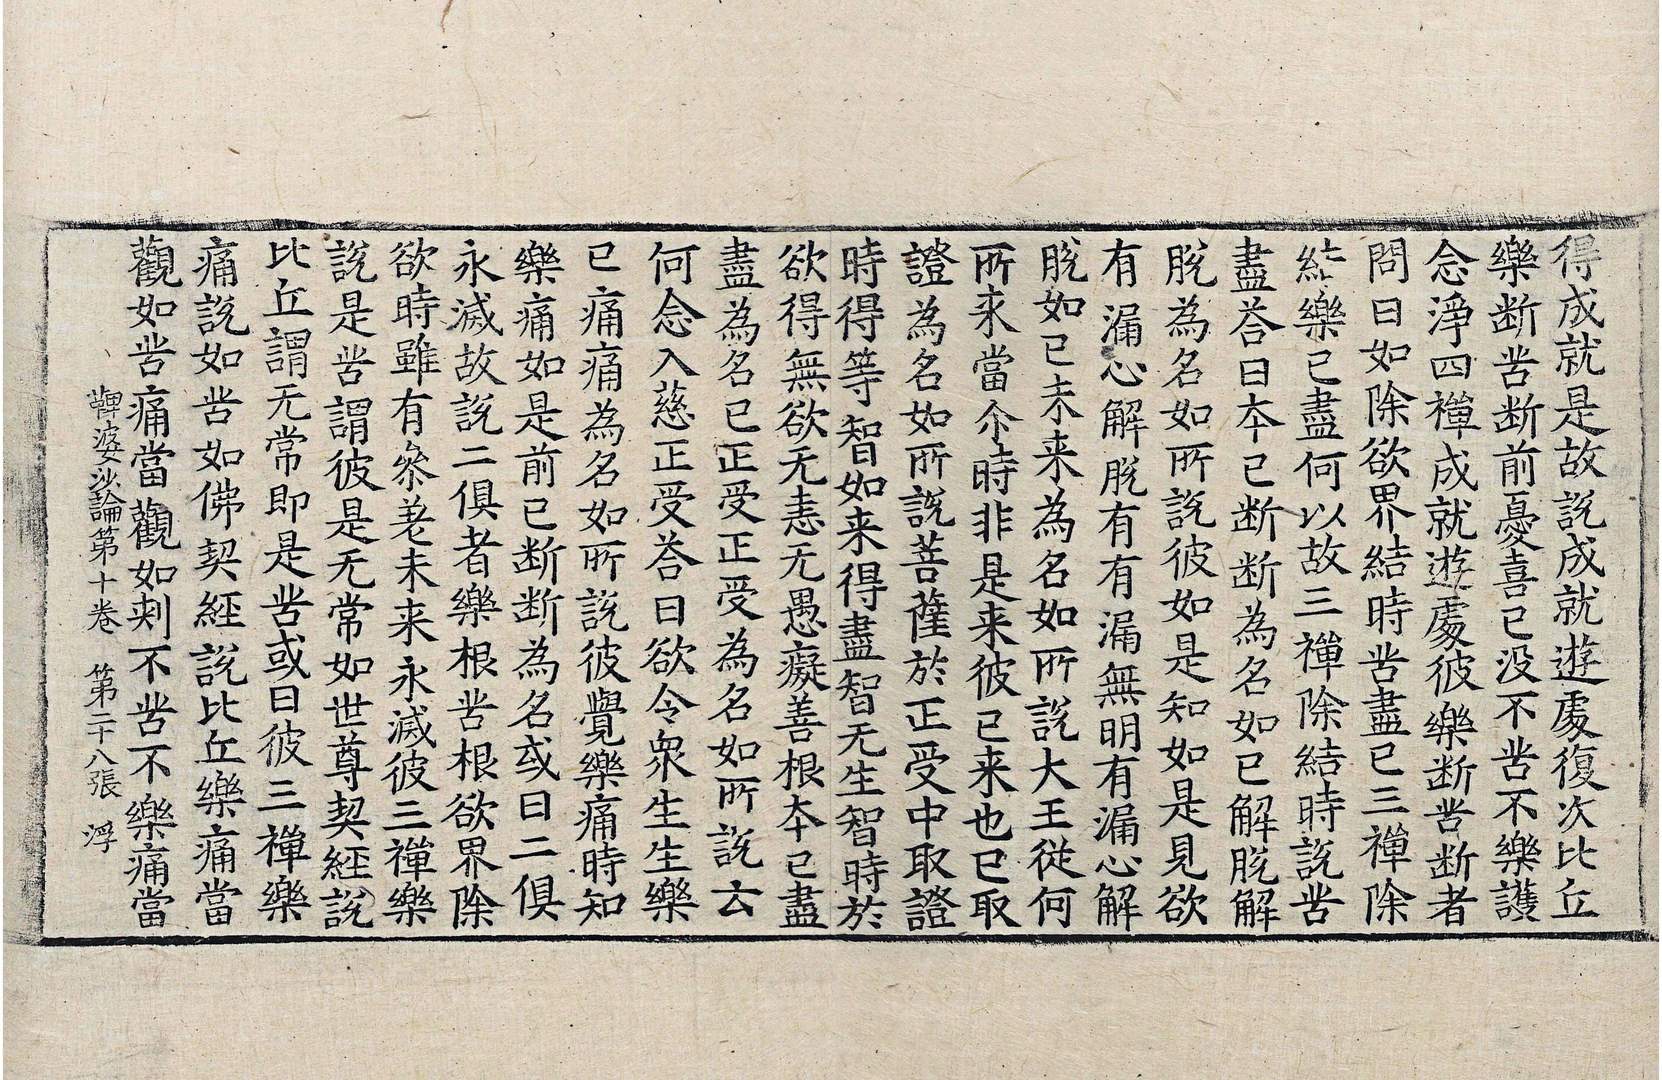 得成就是故說成就遊處復次比丘
樂断苦断前憂喜已没不苦不樂護
念淨四禪成就遊處彼樂断苦断者
問曰如除欲界結時苦盡已三禪除
結樂已盡何以故三禪除結時說苦
盡荅曰夲已断断為名如已解脫解
脫為名如所說彼如是知如是見欲
有漏心解脫有有漏無明有漏心解
脫如已未来為名如所說大王從何
所来當尒時非是来彼已来也已取
證為名如所說菩薩於正受中取證
時得等智如来得盡智无生智時於
欲得無欲无恚无愚癡善根夲已盡
盡為名已正受正受為名如所說云
何念入慈正受荅曰欲令衆生生樂
已痛痛為名如所說彼覺樂痛時知
樂痛如是前已断断為名或曰二俱
永滅故說二俱者樂根苦根欲界除
欲時雖有叅差未来永滅彼三禪樂
說是苦謂彼是无常如世尊契經說
比丘謂无常即是苦或曰彼三禪樂
痛說如苦如佛契經說比丘樂痛當
觀如苦痛當觀如刾不苦不樂痛當
鞞婆沙論第十卷　第二十八張　浮